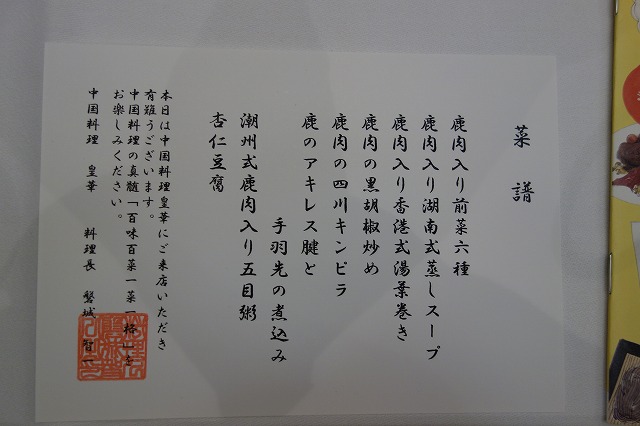 菜譜
鹿肉入り前菜六種
鹿肉入り湖南式蒸しスープ
鹿肉入り香港式湯葉巻き
鹿肉の黒胡椒炒め
鹿肉の四川キンピラ
鹿のアキレス腱と
手羽先の煮込み
潮州式鹿肉入り五目粥
杏仁豆腐
本日は中国料理皇華にご来店いただき
有難うございます。
中国料理の真髄「百味百菜一菜一格」を
お楽しみください。
中国料理 皇華 料理長 盤城 智一